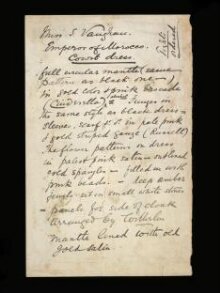 Miss E. Vaughan.
Emperor of Morocco.
Court dress
full circular mantle (same
pattern as black one —
in gold color & pink brocade
(Cinderella) & fringes on
the same style as black dress —
sleeves, scarf & c. in pale pink
& gold striped gauze (Russell)
The flower patterns on dress
in palest pink satin outlined
gold spangles — filled in with
pink beads. — deep amber
fringe — and small white stones
— panels for side of cloak
arranged by Wilhelm
Mantle lined with old
gold satin